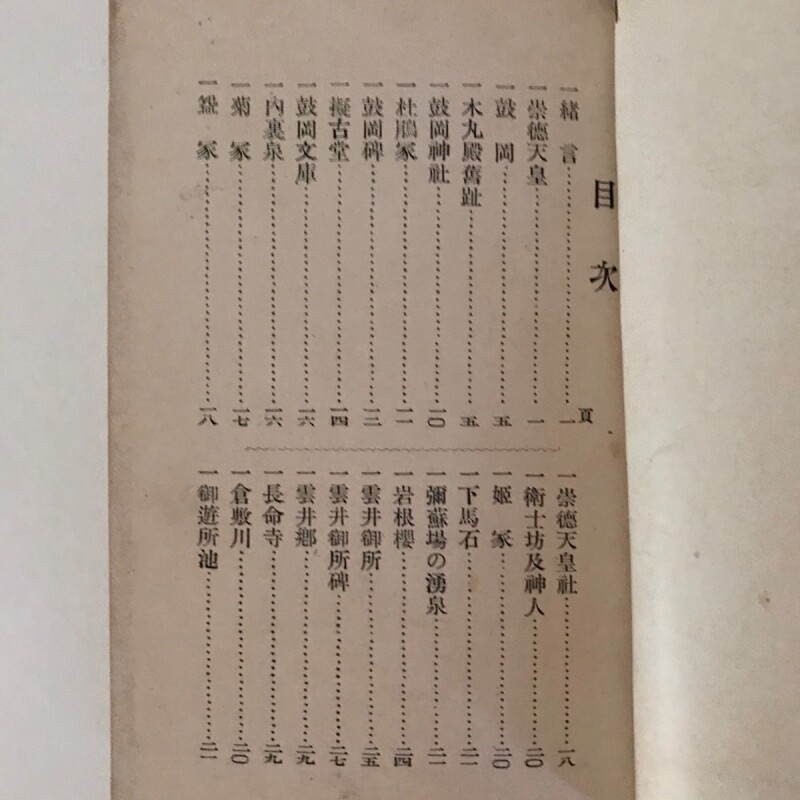 目次
頁
一緒言……一
一崇德天皇……一
一鼓岡……五
一木丸殿舊趾……五
一鼓岡神社……一〇
一杜鵑冢……一一
一鼓岡碑……一二
一擬古堂……一四
一鼓岡文庫……一六
一內裏泉……一六
一菊冢……一七
一盌冢……一八
一崇德天皇社……一八
一衛士坊及神人……二〇
一姬冢……二〇
一下馬石……二一
一彌蘇場の湧泉……二一
一岩根櫻……二四
一雲井御所……二五
一雲井御所碑……二七
一雲井鄕……二九
一長命寺……二九
一倉敷川……二〇
一御遊所池……二一